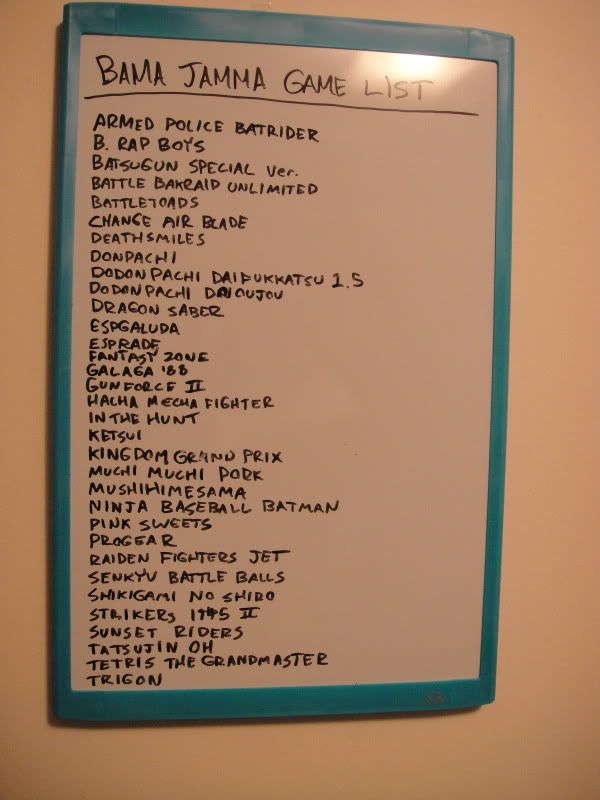 BAMA JAMMA GAME LIST
ARMED POLICE BATRIDER
B. RAP BOYS
BATSUGUN SPECIAL Ver.
BATTLE BAKRAID UNLIMITED
BATTLETOADS
CHANGE AIR BLADE
DEATHSMILES
DONPACHI
DODONPACHI DAIFUKKATSU 1.5
DODONPACHI DAIOUJOU
DRAGON SABER
ESPGALUDA
ESPRADE
FANTASY ZONE
GALAGA '88
GUNFORCE II
HACHA MECHA FIGHTER
IN THE HUNT
KETSUI
KINGDOM GRAND PRIX
MUCHI MUCHI PORK
MUSHIHIMESAMA
NINJA BASEBALL BATMAN
PINK SWEETS
PROGEAR
RAIDEN FIGHTERS JET
SENKYU BATTLE BALLS
SHIKIGAMI NO SHIRO
STRIKERS 1945 II
SUNSET RIDERS
TATSUJIN OH
TETRIS THE GRANDMASTER
TRIGON